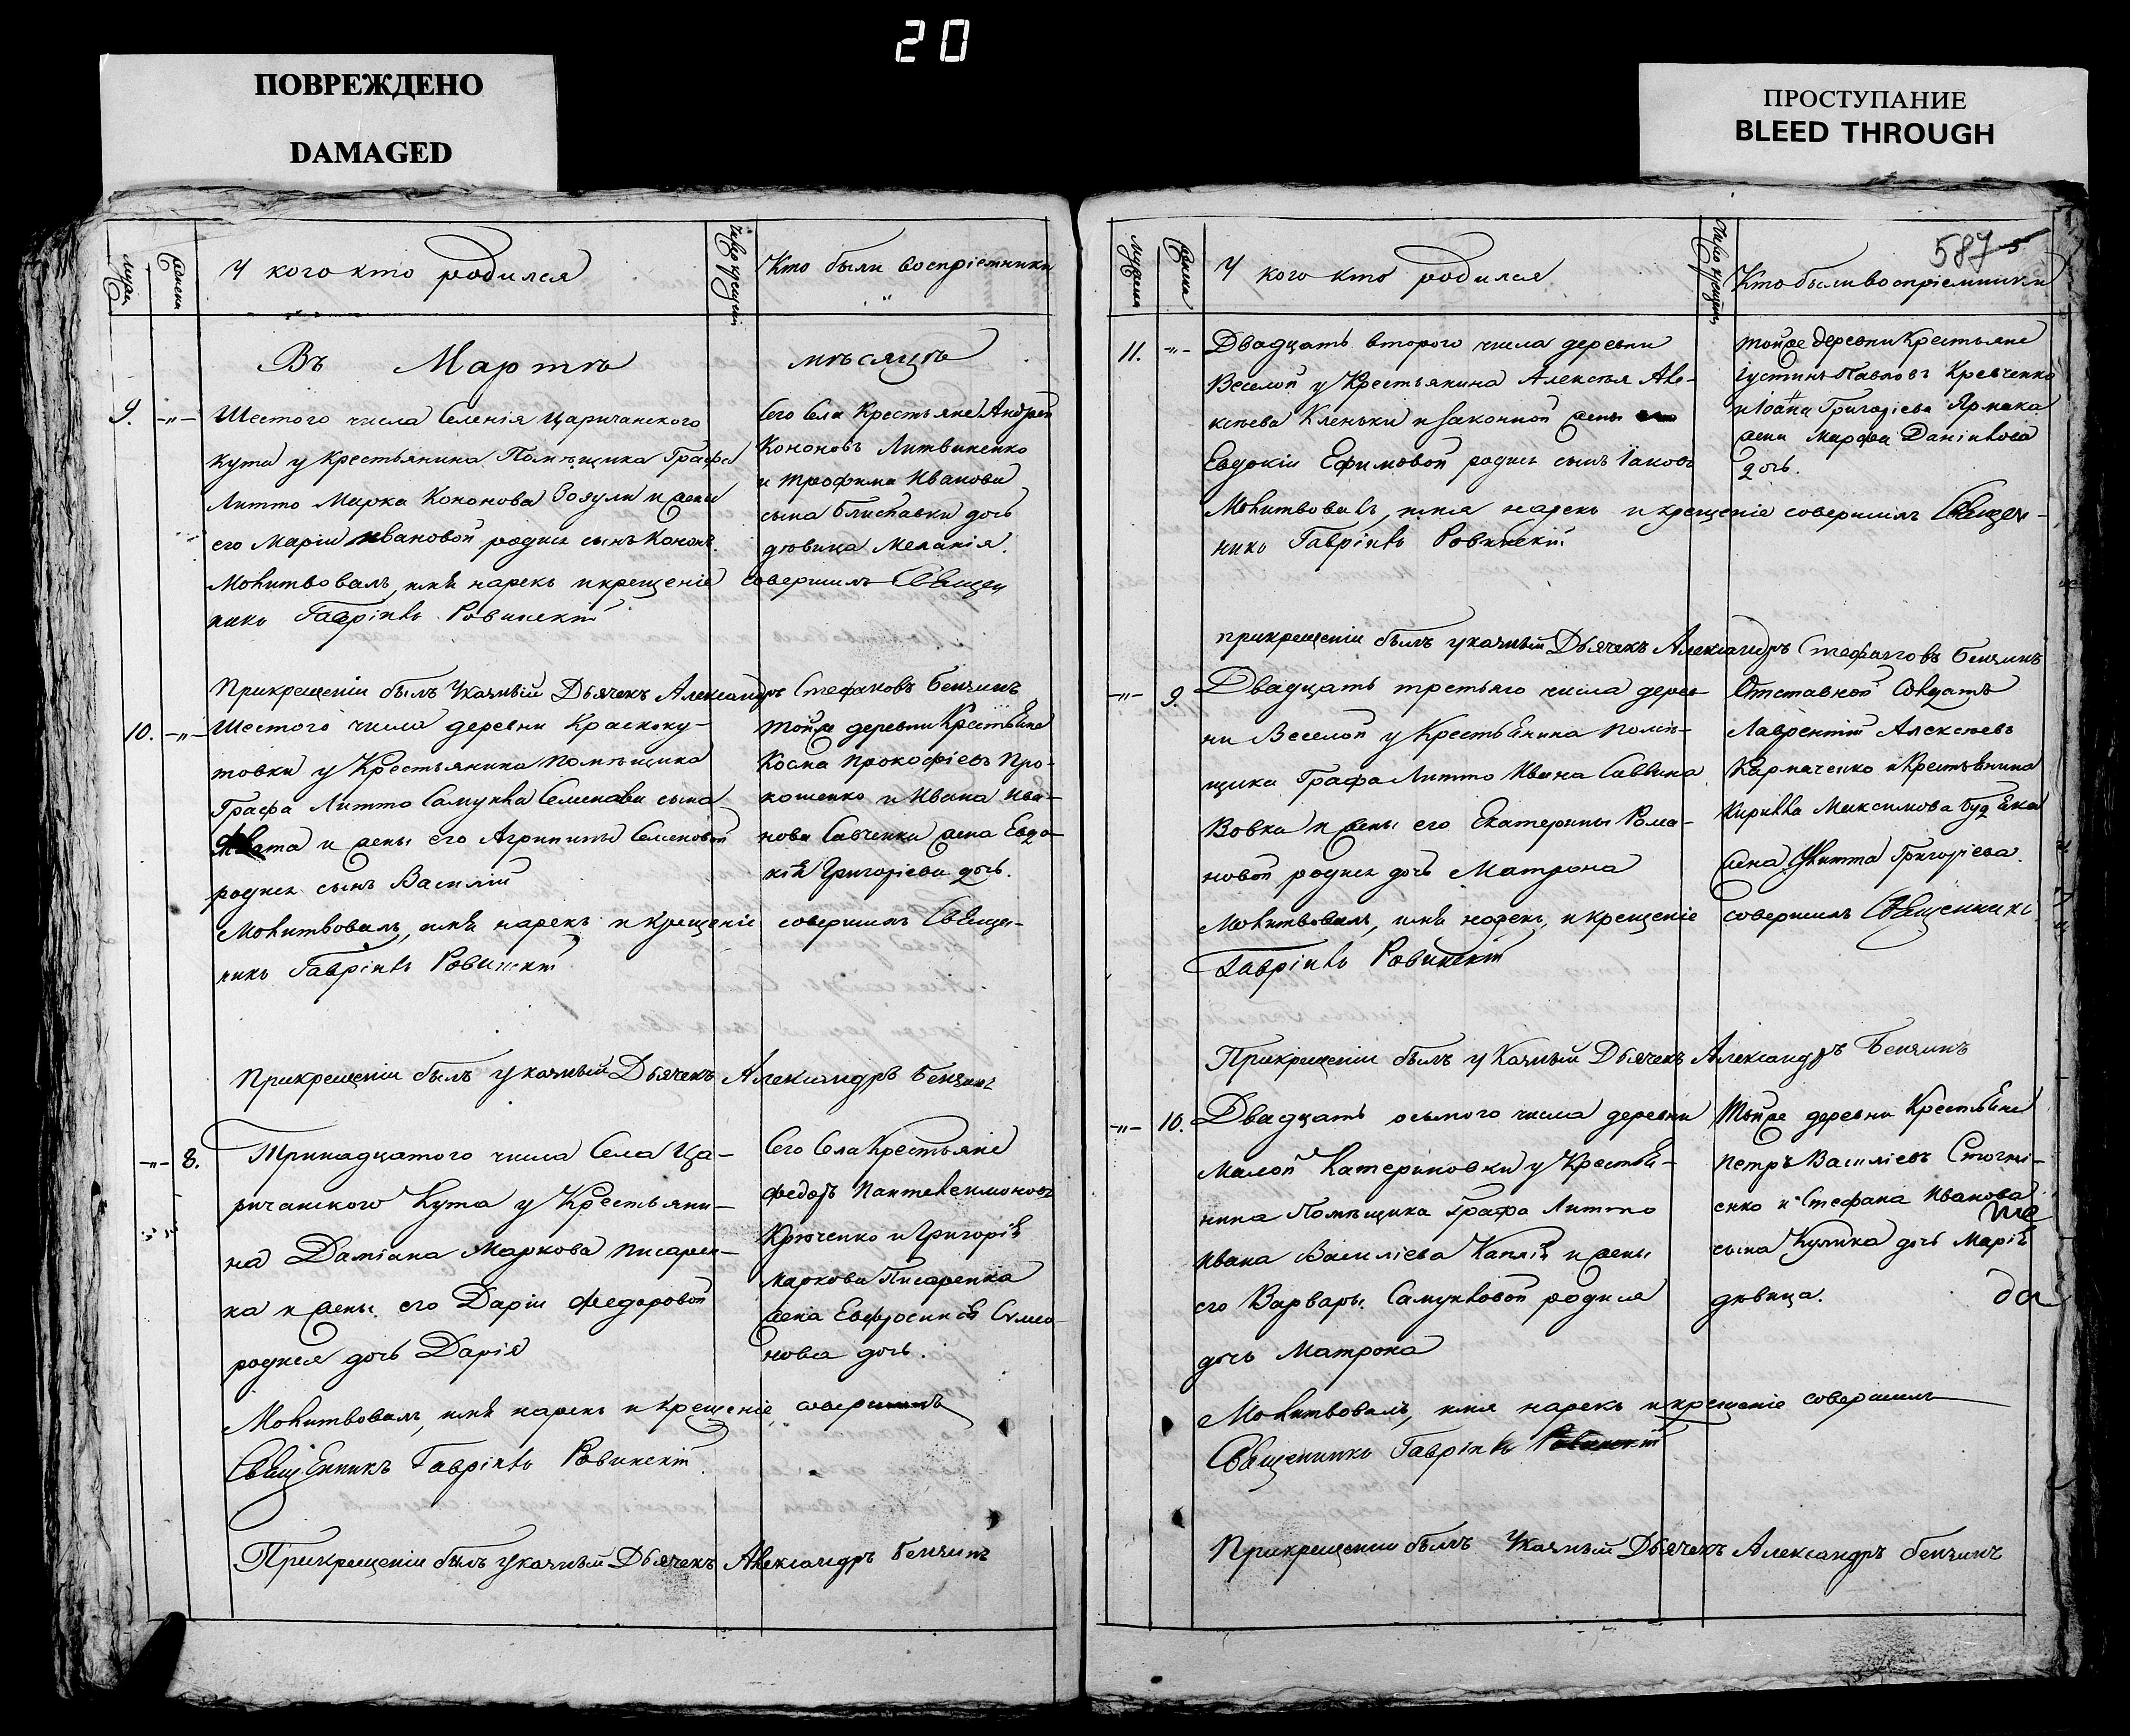 20
ПОВРЕЖДЕНО
DAMAGED
ПРОСТУПАНИЕ
BLEED THROUGH
У кого кто родился
Кто были воспріемники
Въ Мартѣ мѣсяцѣ
9.
Шестого числа Селенія Царичанскаго
Кута у Крестьянина Помѣщика Графа
Литто Марка Кононова Зозули и жены
его Маріи Ивановой родися сынъ Кононъ.
Сего Села Крестьяне Андрей
Кононовъ Литвиненко
и Трофима Иванова
сына Блиставки дочь
дѣвица Меланія.
Молитвовалъ, имя нарекъ и крещеніе совершилъ Священ
никъ Гавріилъ Ровинскій
При крещеніи былъ Указный Дьячекъ Александръ Стефановъ Бенчинъ
10.
Шестого числа деревни Красноку-
товки у Крестьянина Помѣщика
Графа Литто Самуила Семенова сына
и жены его Агрипины Семеновой
родися сынъ Василій
Тойже деревни Крестьяне
Косма Прокофіевъ Про-
кошенко и Ивана Ива-
нова Савченка жена Евдо-
кія Григоріева дочь.
Молитвовалъ, имя нарекъ и крещеніе совершилъ Священ-
никъ Гавріилъ Ровинскій
При крещеніи былъ указный Дьячекъ Александръ Бенчинъ
8.
Тринадцатого числа Села Ца-
ричанского Кута у Крестьяни-
на Даміана Маркова Писарен-
ка и жены его Даріи Федоровой
родися дочь Дарія
Сего Села Крестьяне
Федоръ Пантелеимоновъ
Крюченко и Григорія
Маркова Писаренка
жена Евфросинія Симео-
нова дочь.
Молитвовалъ, имя нарекъ и крещеніе совершилъ
Священникъ Гавріилъ Ровинскій
При крещеніи былъ указный Дьячекъ Александръ Бенчинъ
587
У кого кто родился
Кто были воспріемники
11.
Двадцать второго числа деревни
Веселой у Крестьянина Алексѣя Але-
ксѣева Кленьки и законной жены его
Евдокіи Ефимовой родися сынъ Іаковъ
Тойже деревни Крестьяне
Іустинъ Павловъ Кревченко
и Іоана Григоріева Ярмака
жена Марфа Даніилова
дочь.
Молитвовалъ, имя нарекъ и крещеніе совершилъ Священ-
никъ Гавріилъ Ровинскій
При крещеніи былъ указный Дьячекъ Александръ Стефановъ Бенчинъ
9.
Двадцать третьяго числа дерев-
ни Веселой у Крестьянина Помѣ-
щика Графа Литто Ивана Саввина
Вовка и жены его Екатерины Рома-
новой родися дочь Матрона
Отставной Солдатъ
Лаврентій Алексѣевъ
Карпаченко и Крестьянина
Кирилла Максимова
жена Григоріева.
Молитвовалъ, имя нарекъ, и крещеніе совершилъ Священникъ
Гавріилъ Ровинскій
При крещеніи былъ указный Дьячекъ Александръ Бенчинъ
10.
Двадцать осьмого числа деревни
Малой Катериновки у Крестья-
нина Помѣщика Графа Литто
Ивана Василіева Каплія и жены
его Варвары Самуиловой родися
дочь Матрона
Тойже деревни Крестьяне
Петръ Василіевъ Стогні-
енко и Стефана Иванова
сына Кулика дочь Марія
дѣвица.
Молитвовалъ, имя нарекъ и крещеніе совершилъ
Священникъ Гавріилъ Ровинскій
При крещеніи былъ Указный Дьячекъ Александръ Бенчинъ